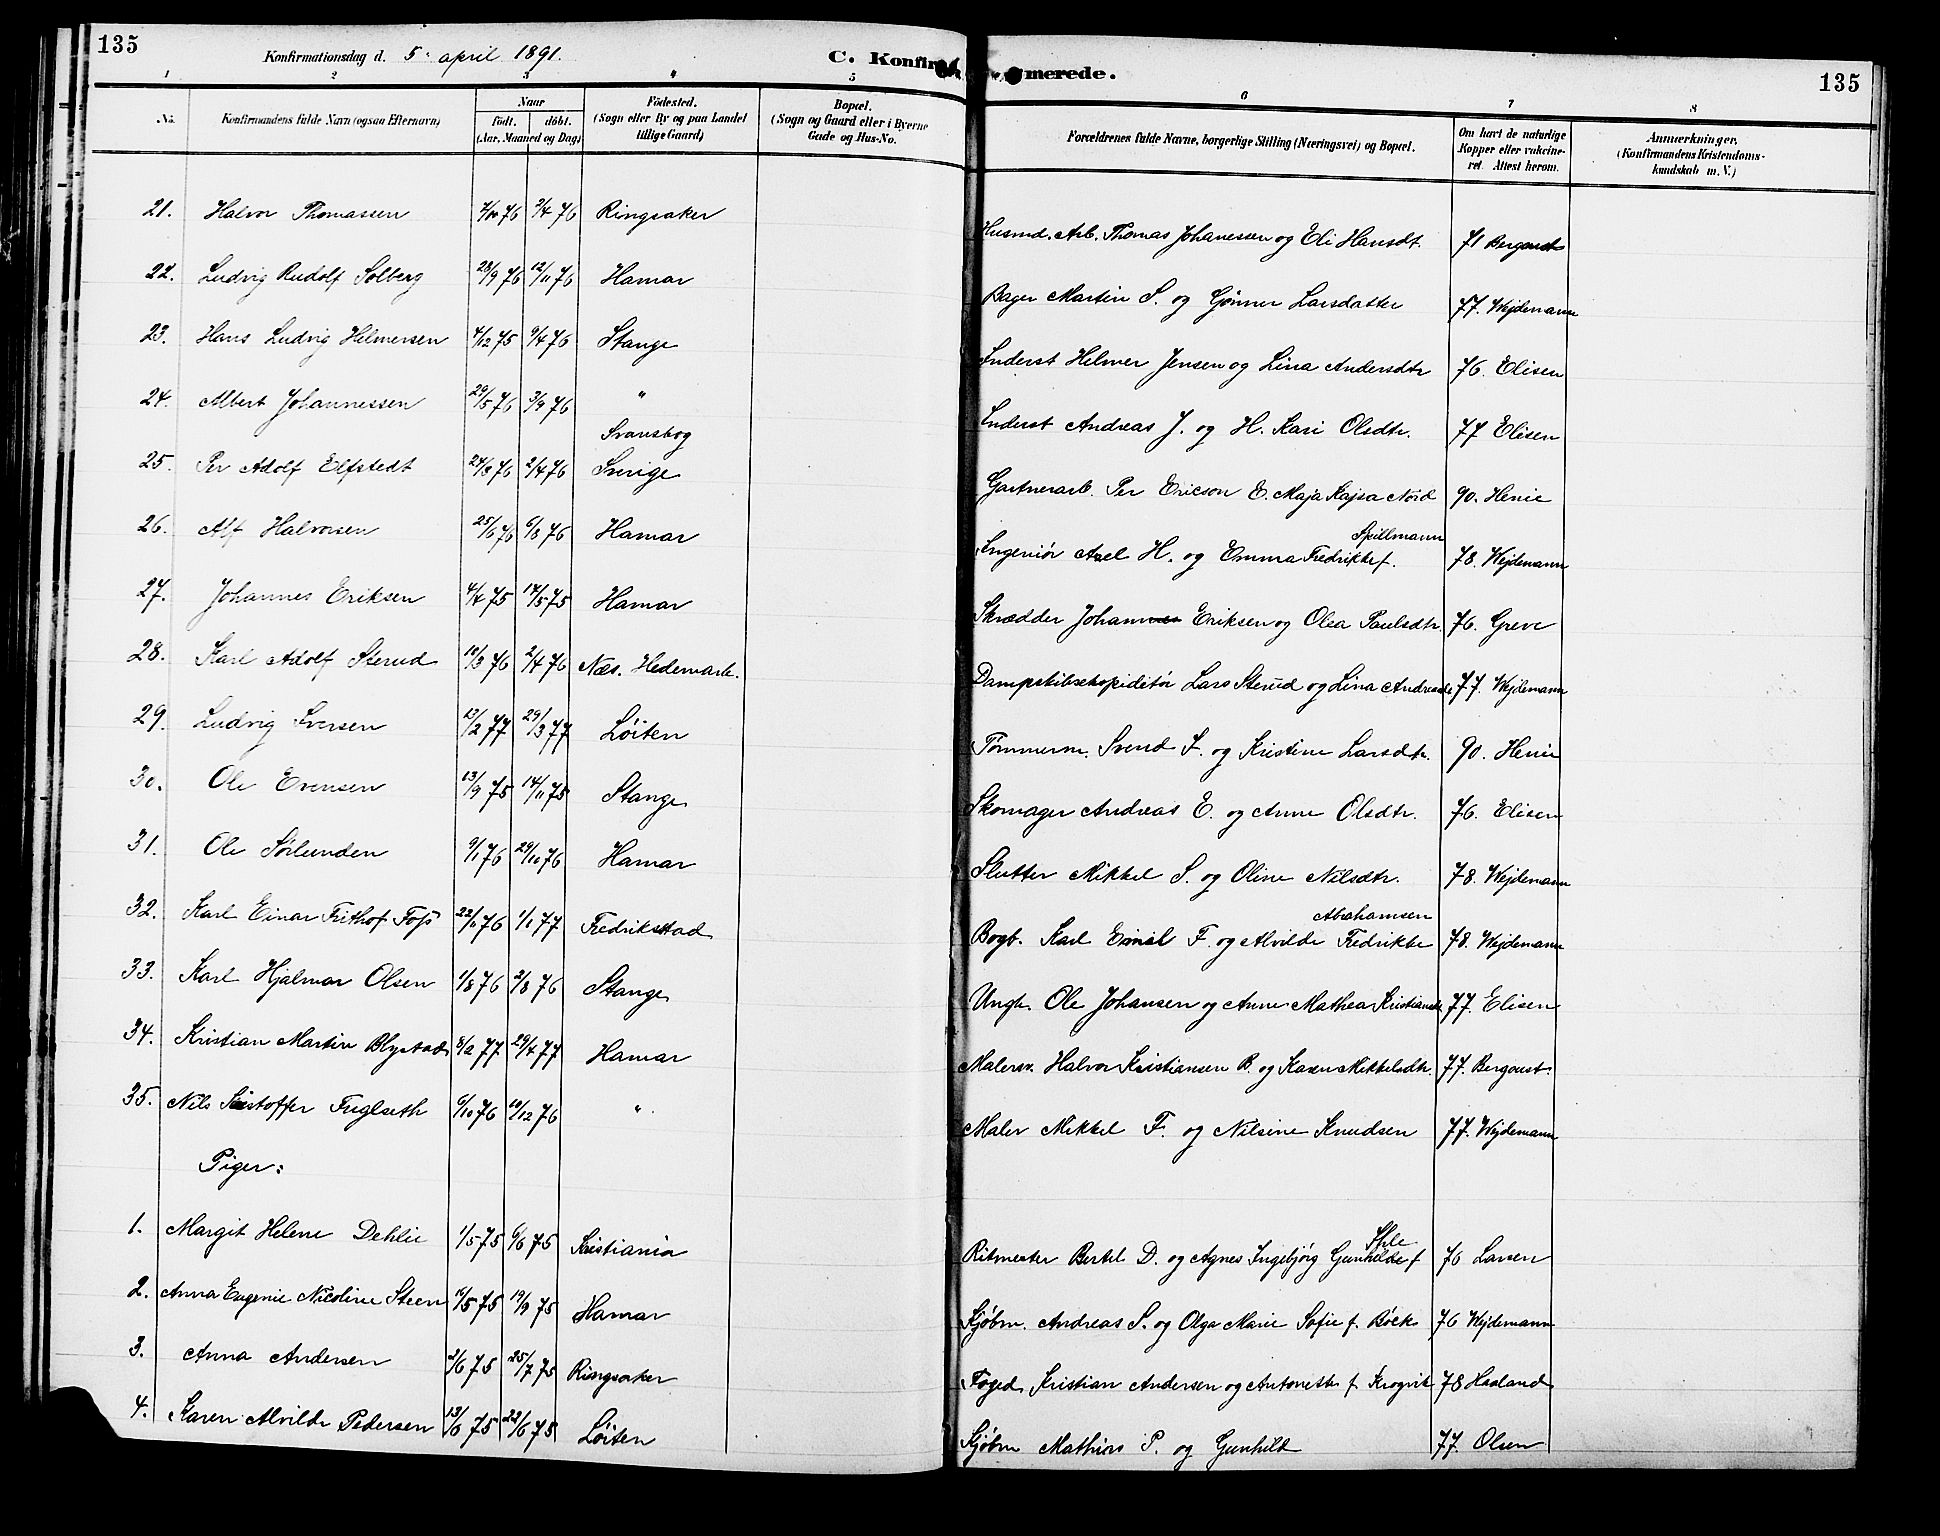 135
Konfirmationsdag d. 5. april 1891.
C. Konfirmerede.
135
1 2 3 4 5 6 7 8
No. Konfirmandens fulde Navn (ogsaa Efternavn) Naar født. døbt. (Aar, Maaned og Dag) Fødested. (Sogn eller By og paa Landet tillige Gaard) Bopæl. (Sogn og Gaard eller i Byerne Gade og Hus-No. Forældrenes fulde Navne, borgerlige Stilling (Næringsvei) og Bopæl. Om havt de naturlige Kopper eller vaccineret. Attest herom. Anmerkninger. (Konfirmandens Kristendomskundskab m. V.)
21. Halvor Thomassen 76 2/4 76 Ringsaker Husmd. Arb. Thomas Johanessen og Eli Hansdt. 71 Bergaust
22. Ludvig Rudolf Solberg 28/9 76 12/11 76 Hamar Bager Martin S. og Gunner Larsdatter 77. Wejdemann
23. Hans Ludvig Helmersen 4/12 75 9/4 76 Stange Inderst Helmer Jensen og Lina Andersdtr 76. Elisen
24. Albert Johannessen 29/5 76 3/9 76 " Inderst Andreas J. og H. Kari Olsdtr. 77 Elisen
25. Per Adolf Elfstedt 76 2/4 76 Svansbog Sverige Gartnerarb. Per Ericson E. Maja Kajsa Nord 90. Henie
26. Alf Halvorsen 25/6 76 6/8 76 Hamar Ingeniør Axel H. og Emma Fredrikke f. Spillmann 78. Wejdemann
27. Johannes Eriksen 4/4 75 17/5 75 Hamar Skrædder Johannes Eriksen og Olea Paulsdtr. 76. Greve
28. Karl Adolf Sterud 10/3 76 2/4 76 Næs. Hedemark. Dampskibsekspiditør Lars Sterud og Lina Andreasdt 77. Wejdemann
29. Ludvig Iversen 13/2 77 29/3 77 Løiten Tømmerm. Svend I. og Kristine Larsdtr. 90. Henie
30. Ole Evensen 13/9 75 14/11 75 Stange Skomager Andreas E. og Anne Olsdtr. 76. Elisen
31. Ole Sørlunden 9/1 76 29/10 76 Hamar Slutter Mikkel S. og Oline Nilsdtr. 78. Wejdemann
32. Karl Einar Frithof Foss 22/11 76 1/1 77 Fredrikstad Bogb. Karl Emil F. og Alvilde Fredrikke Abrahamsen 78. Wejdemann
33. Karl Hjalmar Olsen 1/8 76 2/8 76 Stange Ungk. Ole Johansen og Anne Mathea Kristiansdt 77. Elisen
34. Kristian Martin Blystad 8/2 77 29/4 77 Hamar Malersv. Halvor Kristiansen B. og Karen Mikkelsdtr. 77. Bergaust.
35. Nils Kristoffer Fuglseth 6/10 76 10/12 76 " Maler Mikkel F. og Nilsine Knudsen 77. Wejdemann
Piger:
1. Margit Helene Dehlie 1/5 75 6/6 75 Kristiania Ritmester Bertel D. og Agnes Ingebjørg Gunhilde f 76 Larsen
2. Anna Eugenie Nicoline Steen 16/5 75 19/9 75 Hamar Kjøbm. Andreas S. og Olga Marie Sofie f. Bøck 76 Wejdemann
3. Anna Andersen 2/6 75 25/7 75 Ringsaker Foged Kristian Andersen og Antonette f Krogvik 78 Haaland
4. Karen Alvilde Pedersen 13/6 75 22/6 75 Løiten Kjøbm Mathias P. og Gunhild 77. Olsen